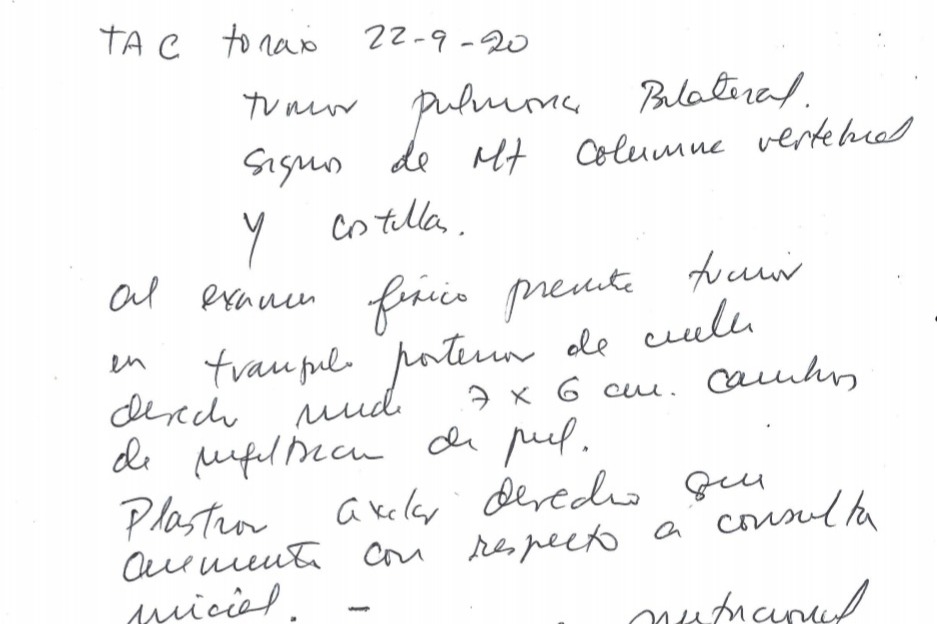 TAC torax 22-9-20
tumor pulmonar Bilateral.
Signos de Mt columna vertebral
y costillas.
al examen fisico presente tumor
en triangulo posterior de cuello
derecho mide 7 x 6 cm. cambios
de infiltracion de piel.
Plastron axilar derecho que
aumenta con respecto a consulta
inicial. -
nutricional